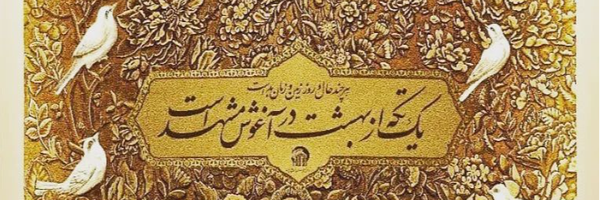 هر چند حال و روز زمین و زمان بد است
یک تکه از بهشت در آغوش مشهد است